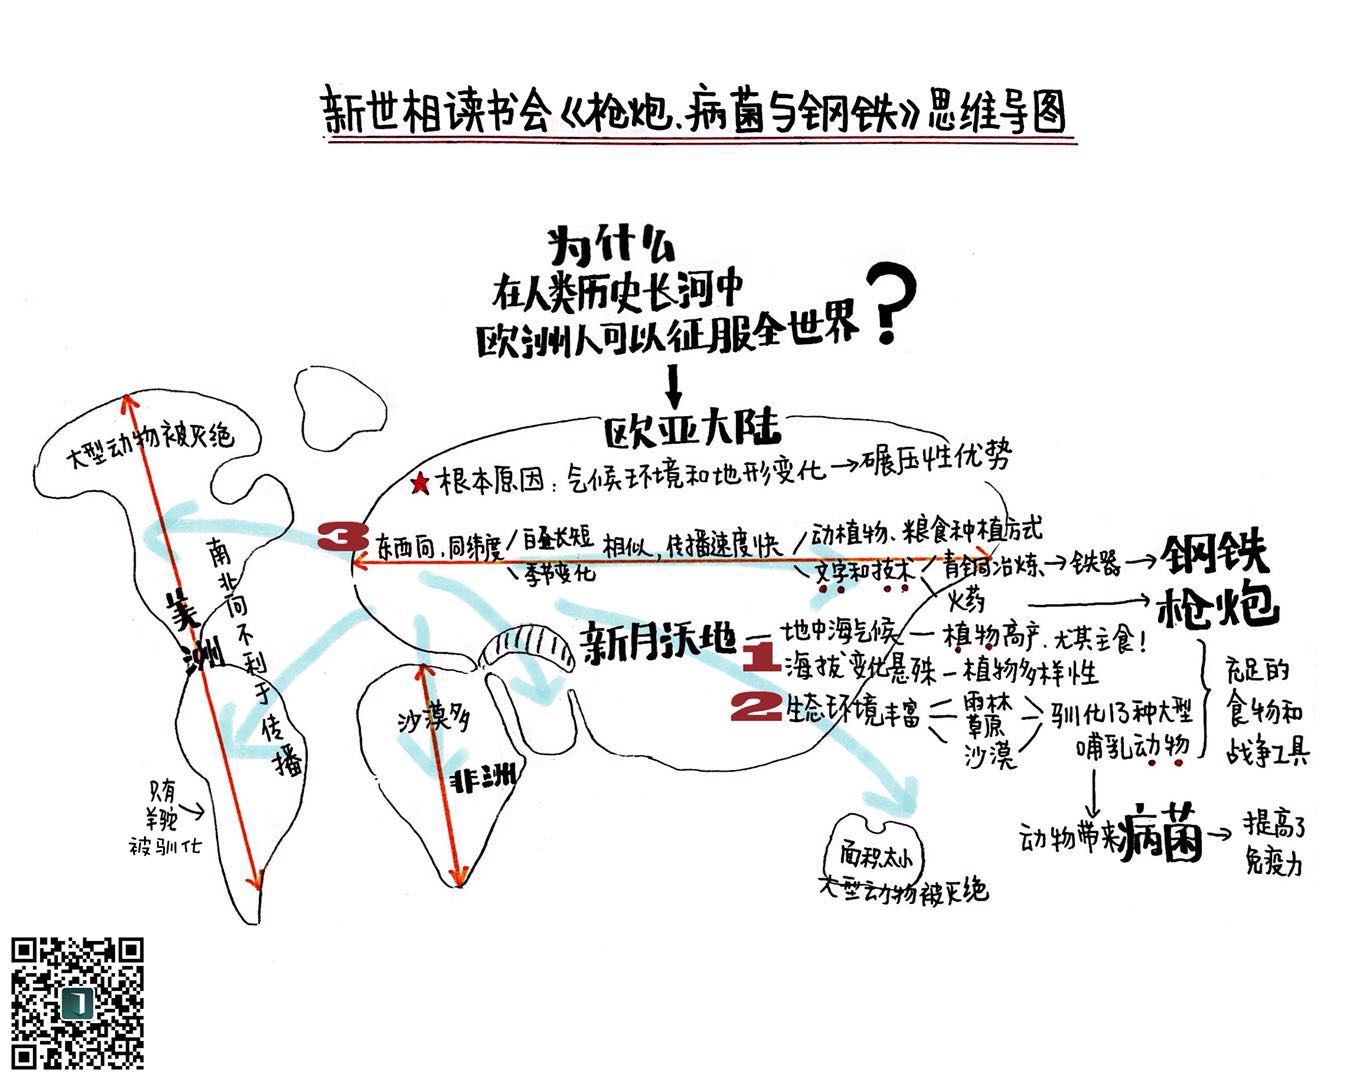 新世相读书会《枪炮、病菌与钢铁》思维导图
为什么
在人类历史长河中
欧洲人可以征服全世界？
欧亚大陆
★根本原因：气候环境和地形变化→碾压性优势
大型动物被灭绝
3 东西向,同纬度 昼长短 相似,传播速度快 动植物、粮食种植方式
季节变化
文字和技术 青铜冶炼→铁器→钢铁
火药→枪炮
南北向不利于传播
美洲
新月沃地—地中海气候—植物高产,尤其主食!
1 海拔变化悬殊—植物多样性
2 生态环境丰富
雨林
草原
沙漠
驯化13种大型
哺乳动物
充足的
食物和
战争工具
沙漠多
非洲
只有
羊驼
被驯化
动物带来病菌→提高了
免疫力
面积太小
大型动物被灭绝